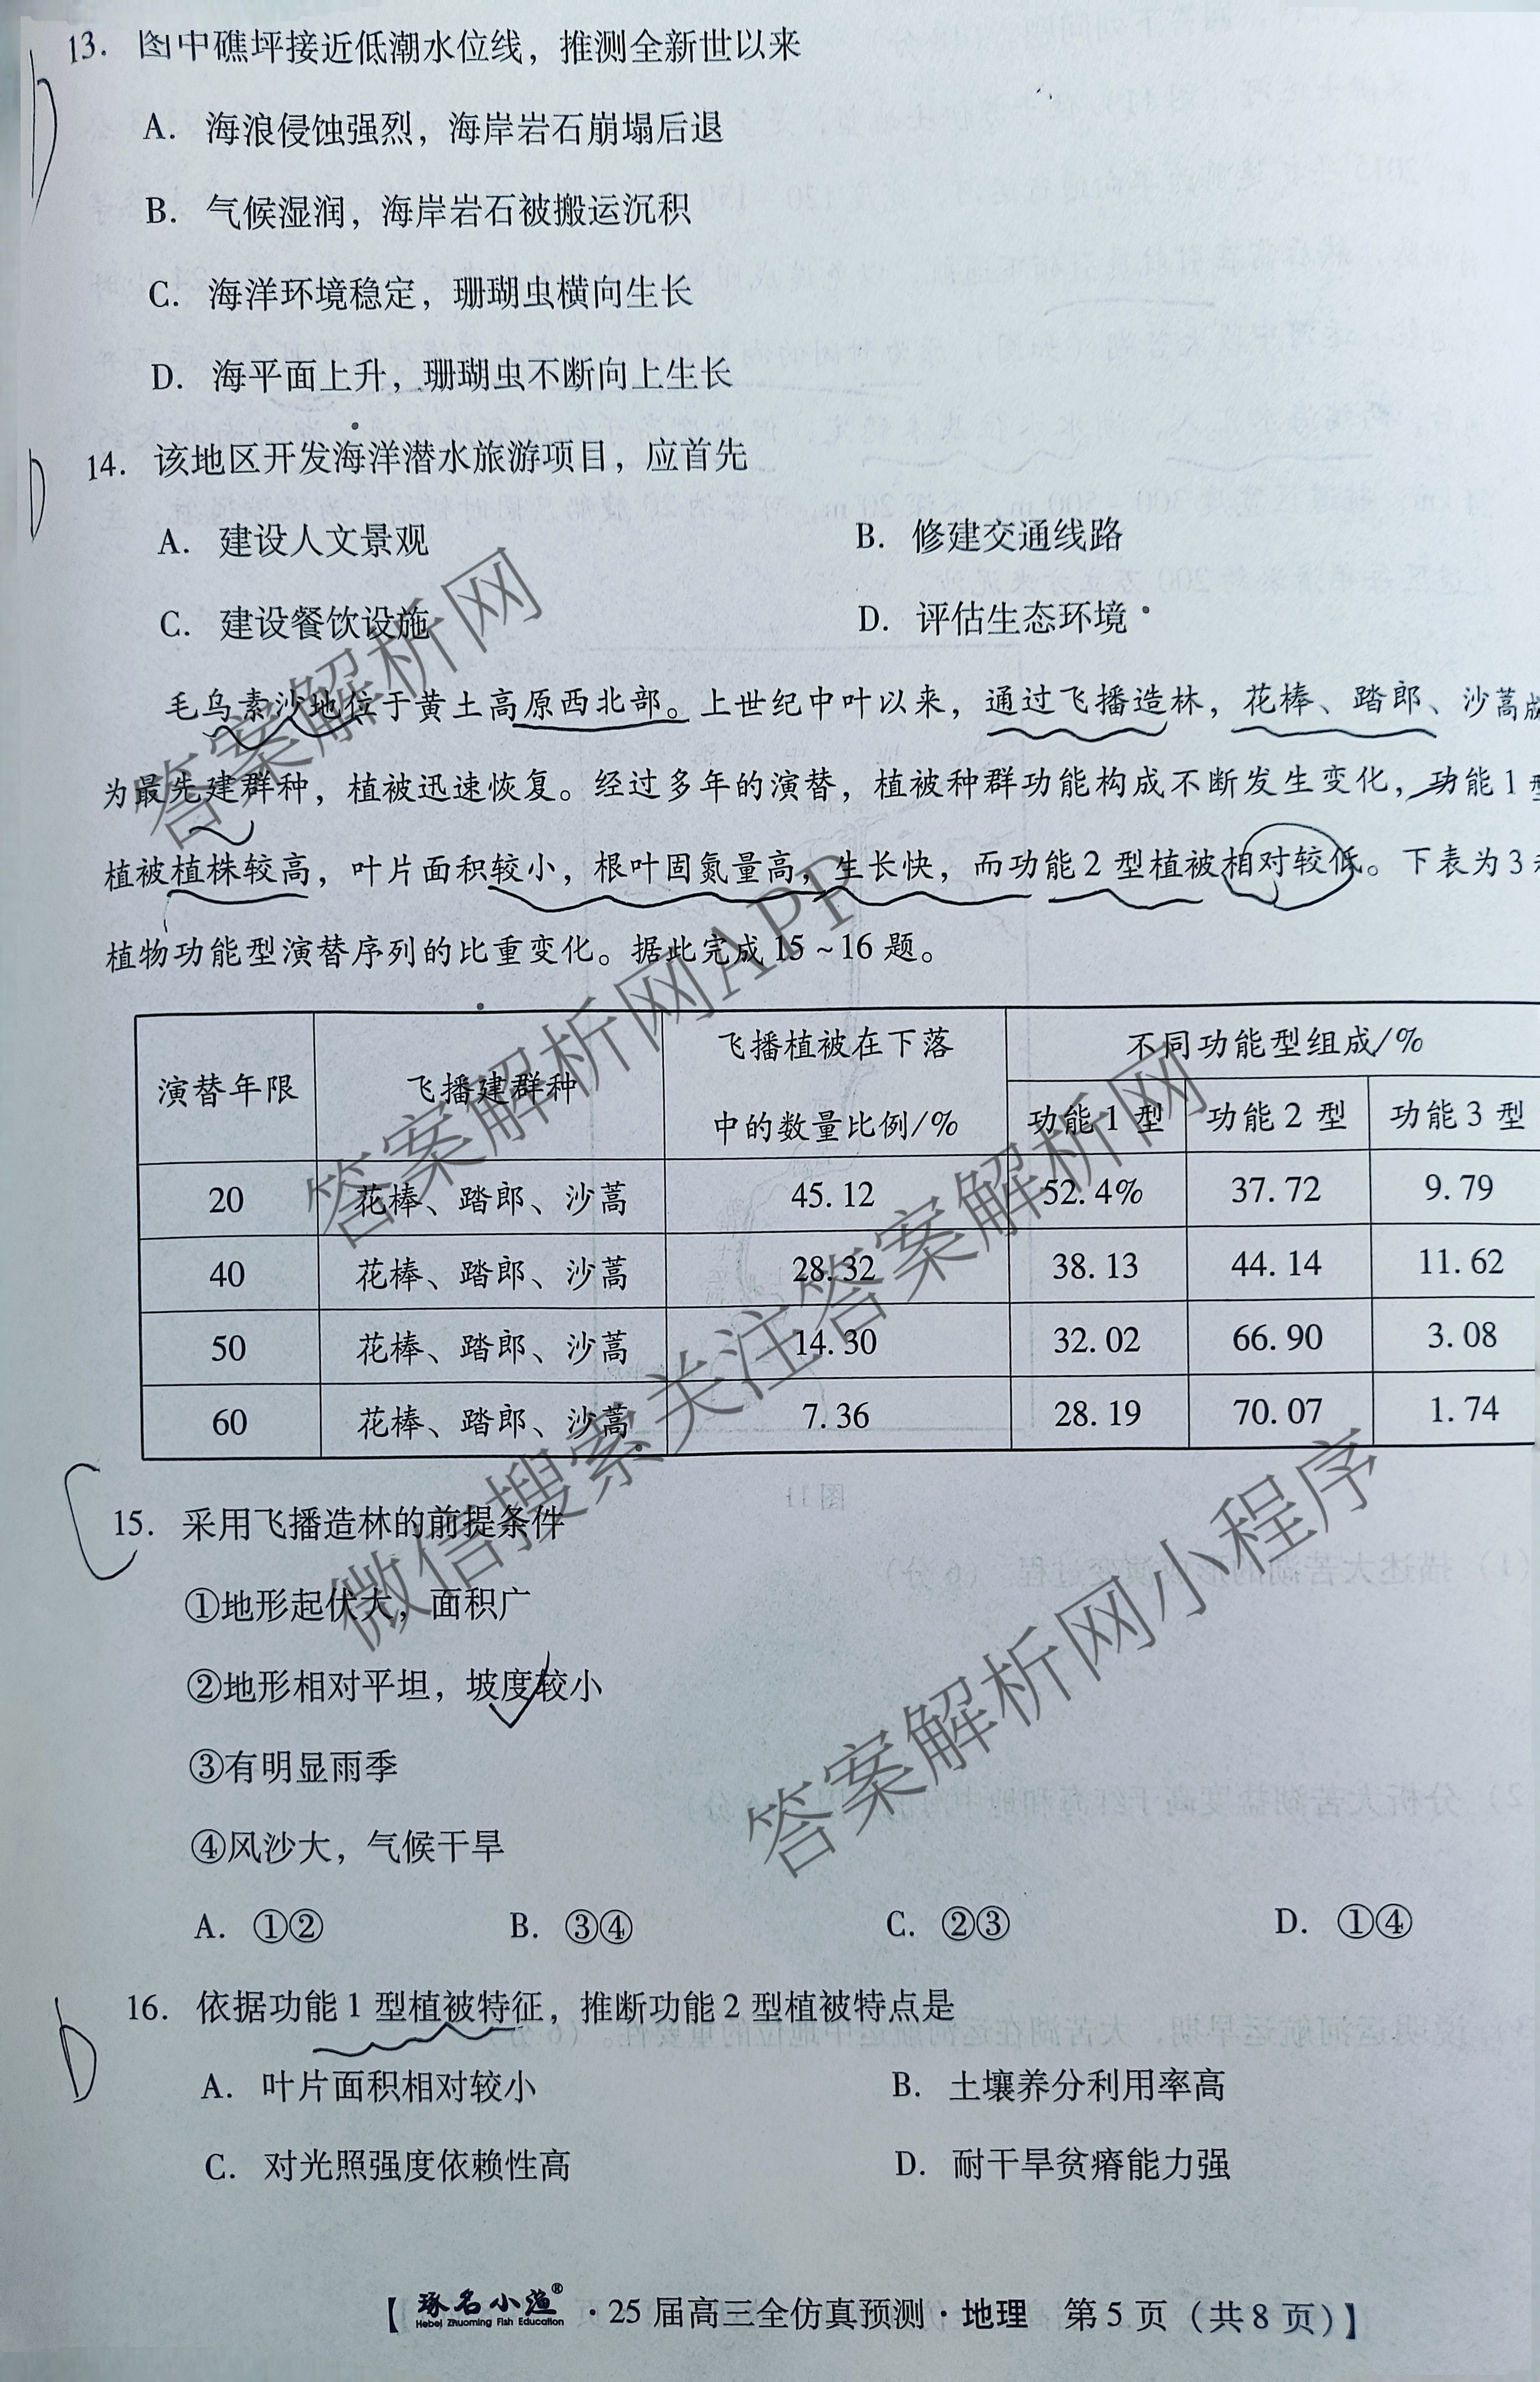 13. 图中礁坪接近低潮水位线，推测全新世以来
A. 海浪侵蚀强烈，海岸岩石崩塌后退
B. 气候湿润，海岸岩石被搬运沉积
C. 海洋环境稳定，珊瑚虫横向生长
D. 海平面上升，珊瑚虫不断向上生长
D
14. 该地区开发海洋潜水旅游项目，应首先
D
A. 建设人文景观 B. 修建交通线路
C. 建设餐饮设施 D. 评估生态环境
毛乌素沙地位于黄土高原西北部。上世纪中叶以来，通过飞播造林，花棒、踏郎、沙蒿成
为最先建群种，植被迅速恢复。经过多年的演替，植被种群功能构成不断发生变化，功能1型
植被植株较高，叶片面积较小，根叶固氮量高，生长快，而功能2型植被相对较低。下表为3
植物功能型演替序列的比重变化。据此完成15~16题。
演替年限 飞播建群种 飞播植被在下落中的数量比例/% 不同功能型组成/%
功能1型 功能2型 功能3型
20 花棒、踏郎、沙蒿 45.12 52.4% 37.72 9.79
40 花棒、踏郎、沙蒿 28.32 38.13 44.14 11.62
50 花棒、踏郎、沙蒿 14.30 32.02 66.90 3.08
60 花棒、踏郎、沙蒿 7.36 28.19 70.07 1.74
C
15. 采用飞播造林的前提条件
①地形起伏大，面积广
②地形相对平坦，坡度较小
③有明显雨季
④风沙大，气候干旱
A. ①② B. ③④ C. ②③ D. ①④
16. 依据功能1型植被特征，推断功能2型植被特点是
D
A. 叶片面积相对较小 B. 土壤养分利用率高
C. 对光照强度依赖性高 D. 耐干旱贫瘠能力强
【琢名小渔® Hebei Zhuoming Fish Education ·25届高三全仿真预测·地理 第5页（共8页）】
答案解析网
答案解析网APP
微信搜索关注答案解析网
答案解析网小程序